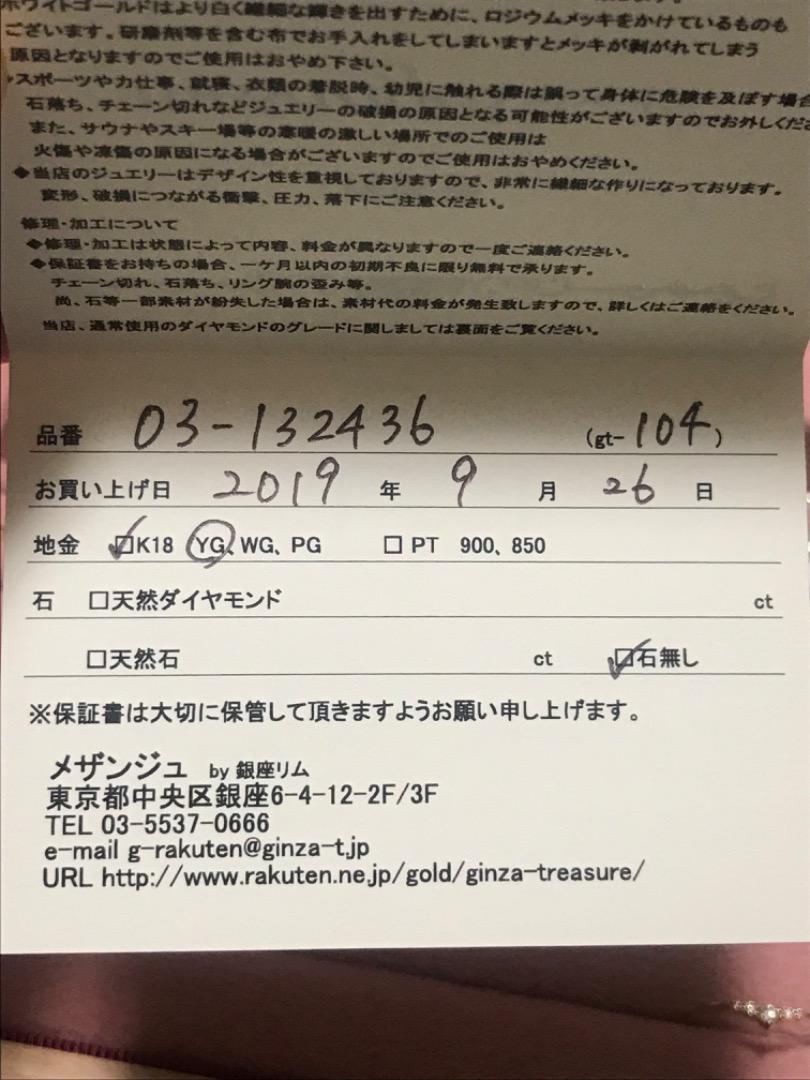 ホワイトゴールドはより白く繊細な輝きを出すために、ロジウムメッキをかけているものも
ございます。研磨剤等を含む布でお手入れをしてしまいますとメッキが剥がれてしまう
原因となりますのでご使用はおやめ下さい。
スポーツや力仕事、就寝、衣類の着脱時、幼児に触れる際は誤って身体に危険を及ぼす場合
石落ち、チェーン切れなどジュエリーの破損の原因となる可能性がございますのでお外しくださ
また、サウナやスキー場等の寒暖の激しい場所でのご使用は
火傷や凍傷の原因になる場合がございますのでご使用はおやめください。
◆当店のジュエリーはデザイン性を重視しておりますので、非常に繊細な作りになっております。
変形、破損につながる衝撃、圧力、落下にご注意ください。
修理・加工について
◆修理・加工は状態によって内容、料金が異なりますので一度ご連絡ください。
◆保証書をお持ちの場合、一ケ月以内の初期不良に限り無料で承ります。
チェーン切れ、石落ち、リング腕の歪み等。
尚、石等一部素材が紛失した場合は、素材代の料金が発生致しますので、詳しくはご連絡をください。
当店、通常使用のダイヤモンドのグレードに関しましては裏面をご覧ください。
品番 03-132436 (gt-104)
お買い上げ日 2019 年 9 月 26 日
地金 ☑K18 YG、WG、PG □ PT 900、850
石 □天然ダイヤモンド ct
□天然石 ct ☑石無し
※保証書は大切に保管して頂きますようお願い申し上げます。
メザンジュ by 銀座リム
東京都中央区銀座6-4-12-2F/3F
TEL 03-5537-0666
e-mail g-rakuten@ginza-t.jp
URL http://www.rakuten.ne.jp/gold/ginza-treasure/